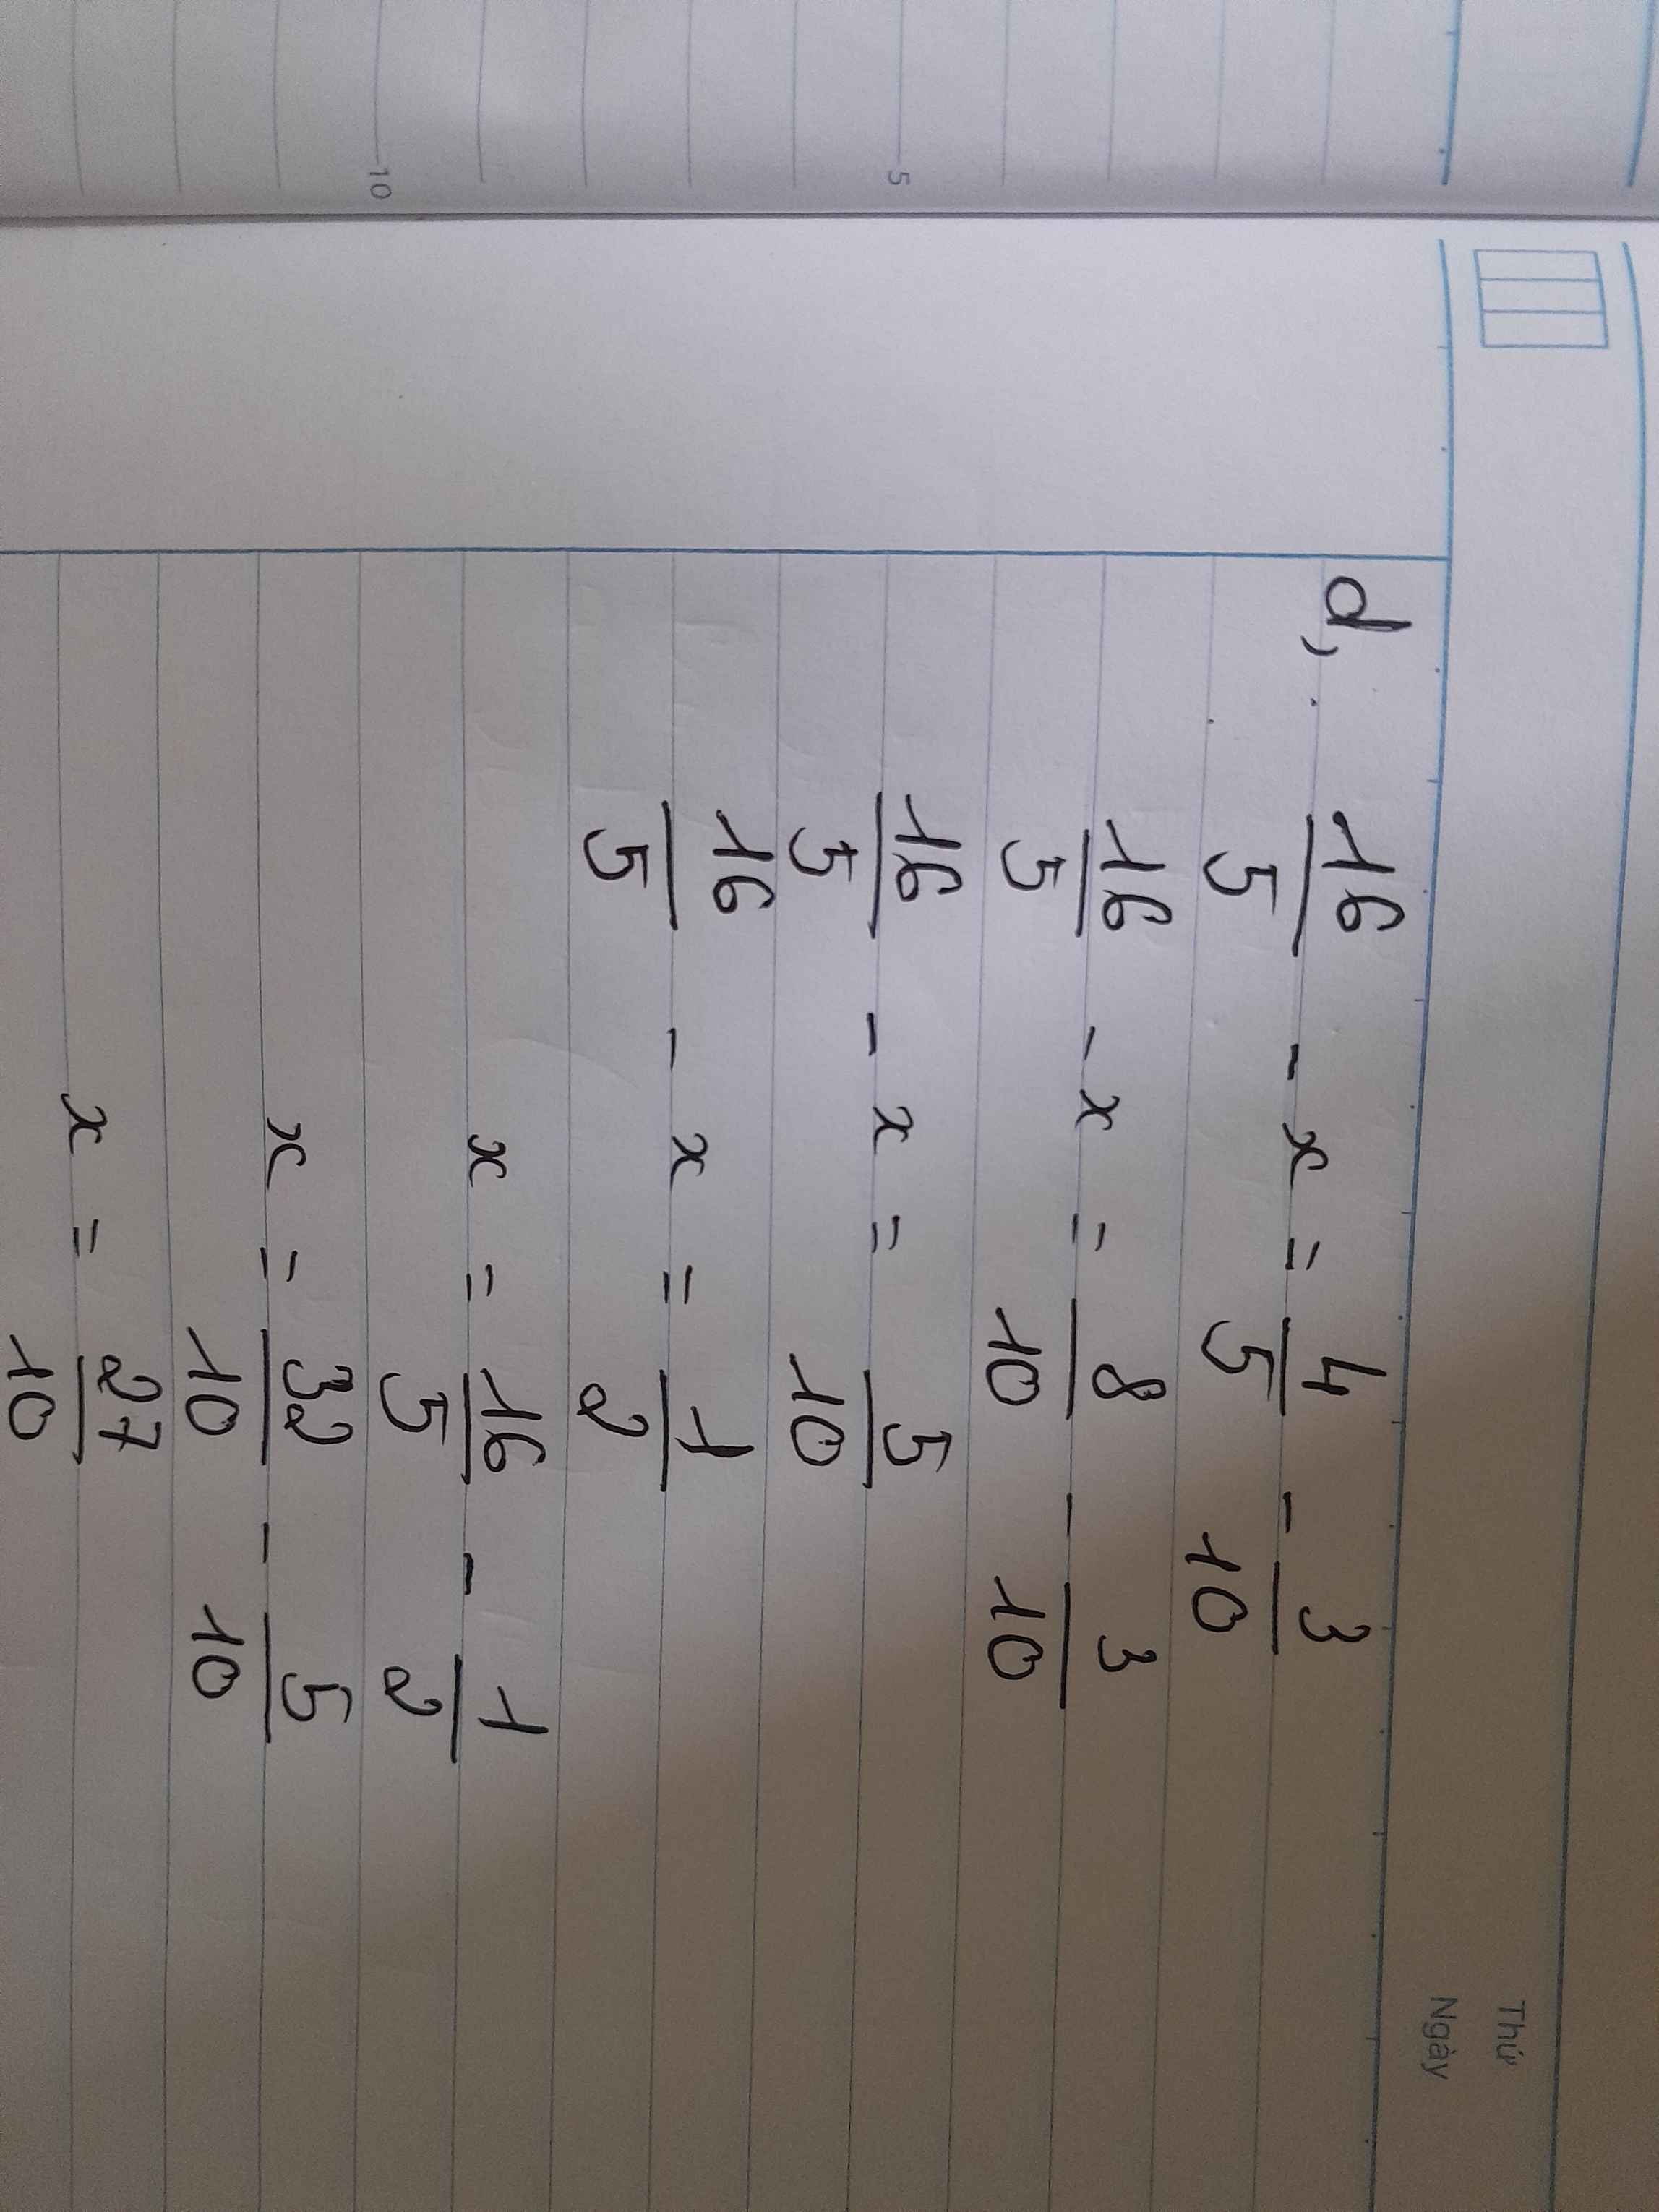 5
10
Thứ
Ngày
d, 16/5 - x = 4/5 - 3/10
16/5 - x = 8/10 - 3/10
16/5 - x = 5/10
16/5 - x = 1/2
x = 16/5 - 1/2
x = 32/10 - 5/10
x = 27/10